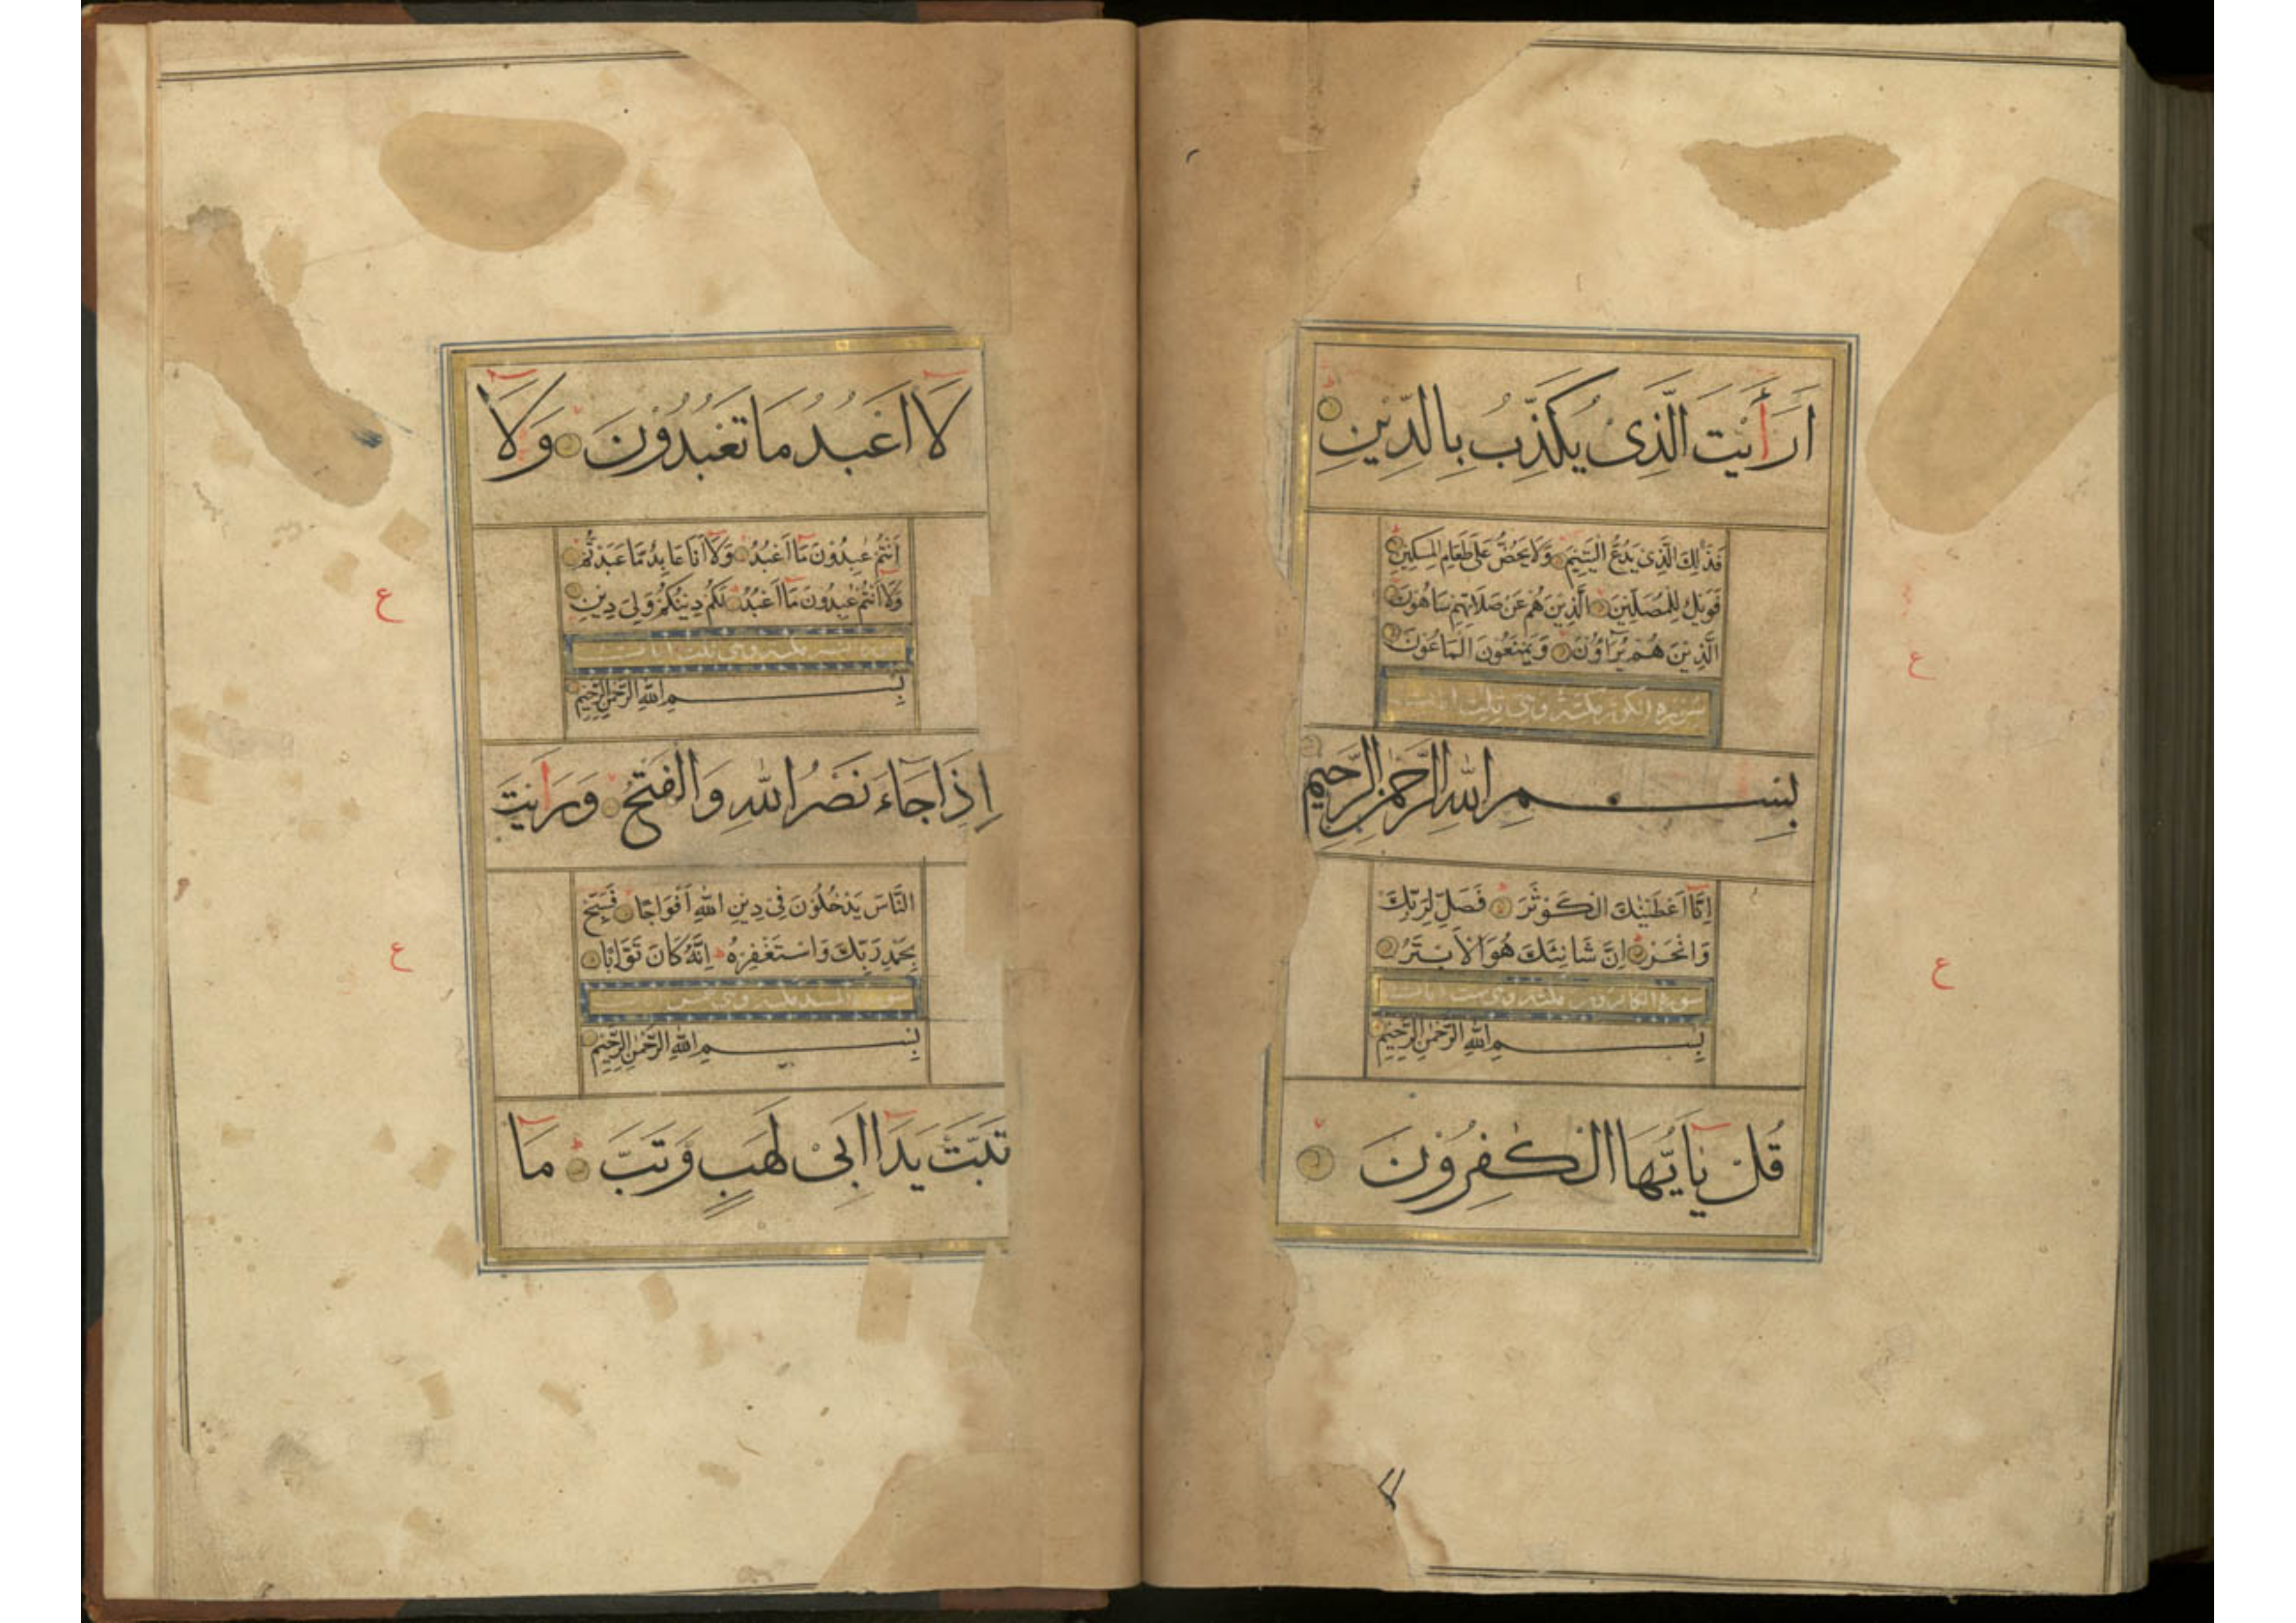 اَرَاَیْتَ الَّذِیْ یُکَذِّبُ بِالدِّیْنِ
فَذٰلِكَ الَّذِیْ یَدُعُّ الْیَتِیْمَ وَلَا یَحُضُّ عَلٰی طَعَامِ الْمِسْکِیْنِ
فَوَیْلٌ لِّلْمُصَلِّیْنَ الَّذِیْنَ هُمْ عَنْ صَلَاتِهِمْ سَاهُوْنَ
الَّذِیْنَ هُمْ یُرَآءُوْنَ وَیَمْنَعُوْنَ الْمَاعُوْنَ
سورة الکوثر مکیة وهی ثلث ایات
بِسْمِ اللّٰهِ الرَّحْمٰنِ الرَّحِیْمِ
اِنَّا اَعْطَیْنٰكَ الْکَوْثَرَ فَصَلِّ لِرَبِّكَ
وَانْحَرْ اِنَّ شَانِئَكَ هُوَ الْاَبْتَرُ
سورة الکافرون مکیة وهی ست ایات
بِسْمِ اللّٰهِ الرَّحْمٰنِ الرَّحِیْمِ
قُلْ یٰاَیُّهَا الْکٰفِرُوْنَ
ع
ع
لَا اَعْبُدُ مَا تَعْبُدُوْنَ وَلَا
اَنْتُمْ عٰبِدُوْنَ مَا اَعْبُدُ وَلَا اَنَا عَابِدٌ مَّا عَبَدْتُّمْ
وَلَا اَنْتُمْ عٰبِدُوْنَ مَا اَعْبُدُ لَکُمْ دِیْنُکُمْ وَلِیَ دِیْنِ
سورة النصر مکیة وهی ثلث ایات
بِسْمِ اللّٰهِ الرَّحْمٰنِ الرَّحِیْمِ
اِذَا جَآءَ نَصْرُ اللّٰهِ وَالْفَتْحُ وَرَاَیْتَ
النَّاسَ یَدْخُلُوْنَ فِیْ دِیْنِ اللّٰهِ اَفْوَاجًا فَسَبِّحْ
بِحَمْدِ رَبِّكَ وَاسْتَغْفِرْهُ اِنَّهٗ کَانَ تَوَّابًا
سورة المسد مکیة وهی خمس ایات
بِسْمِ اللّٰهِ الرَّحْمٰنِ الرَّحِیْمِ
تَبَّتْ یَدَا اَبِیْ لَهَبٍ وَّتَبَّ مَا
ع
ع